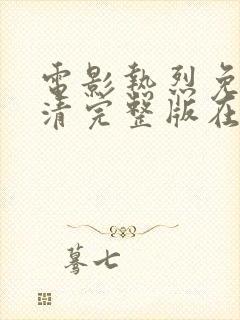 電影熱烈免
清完整版在
驀七